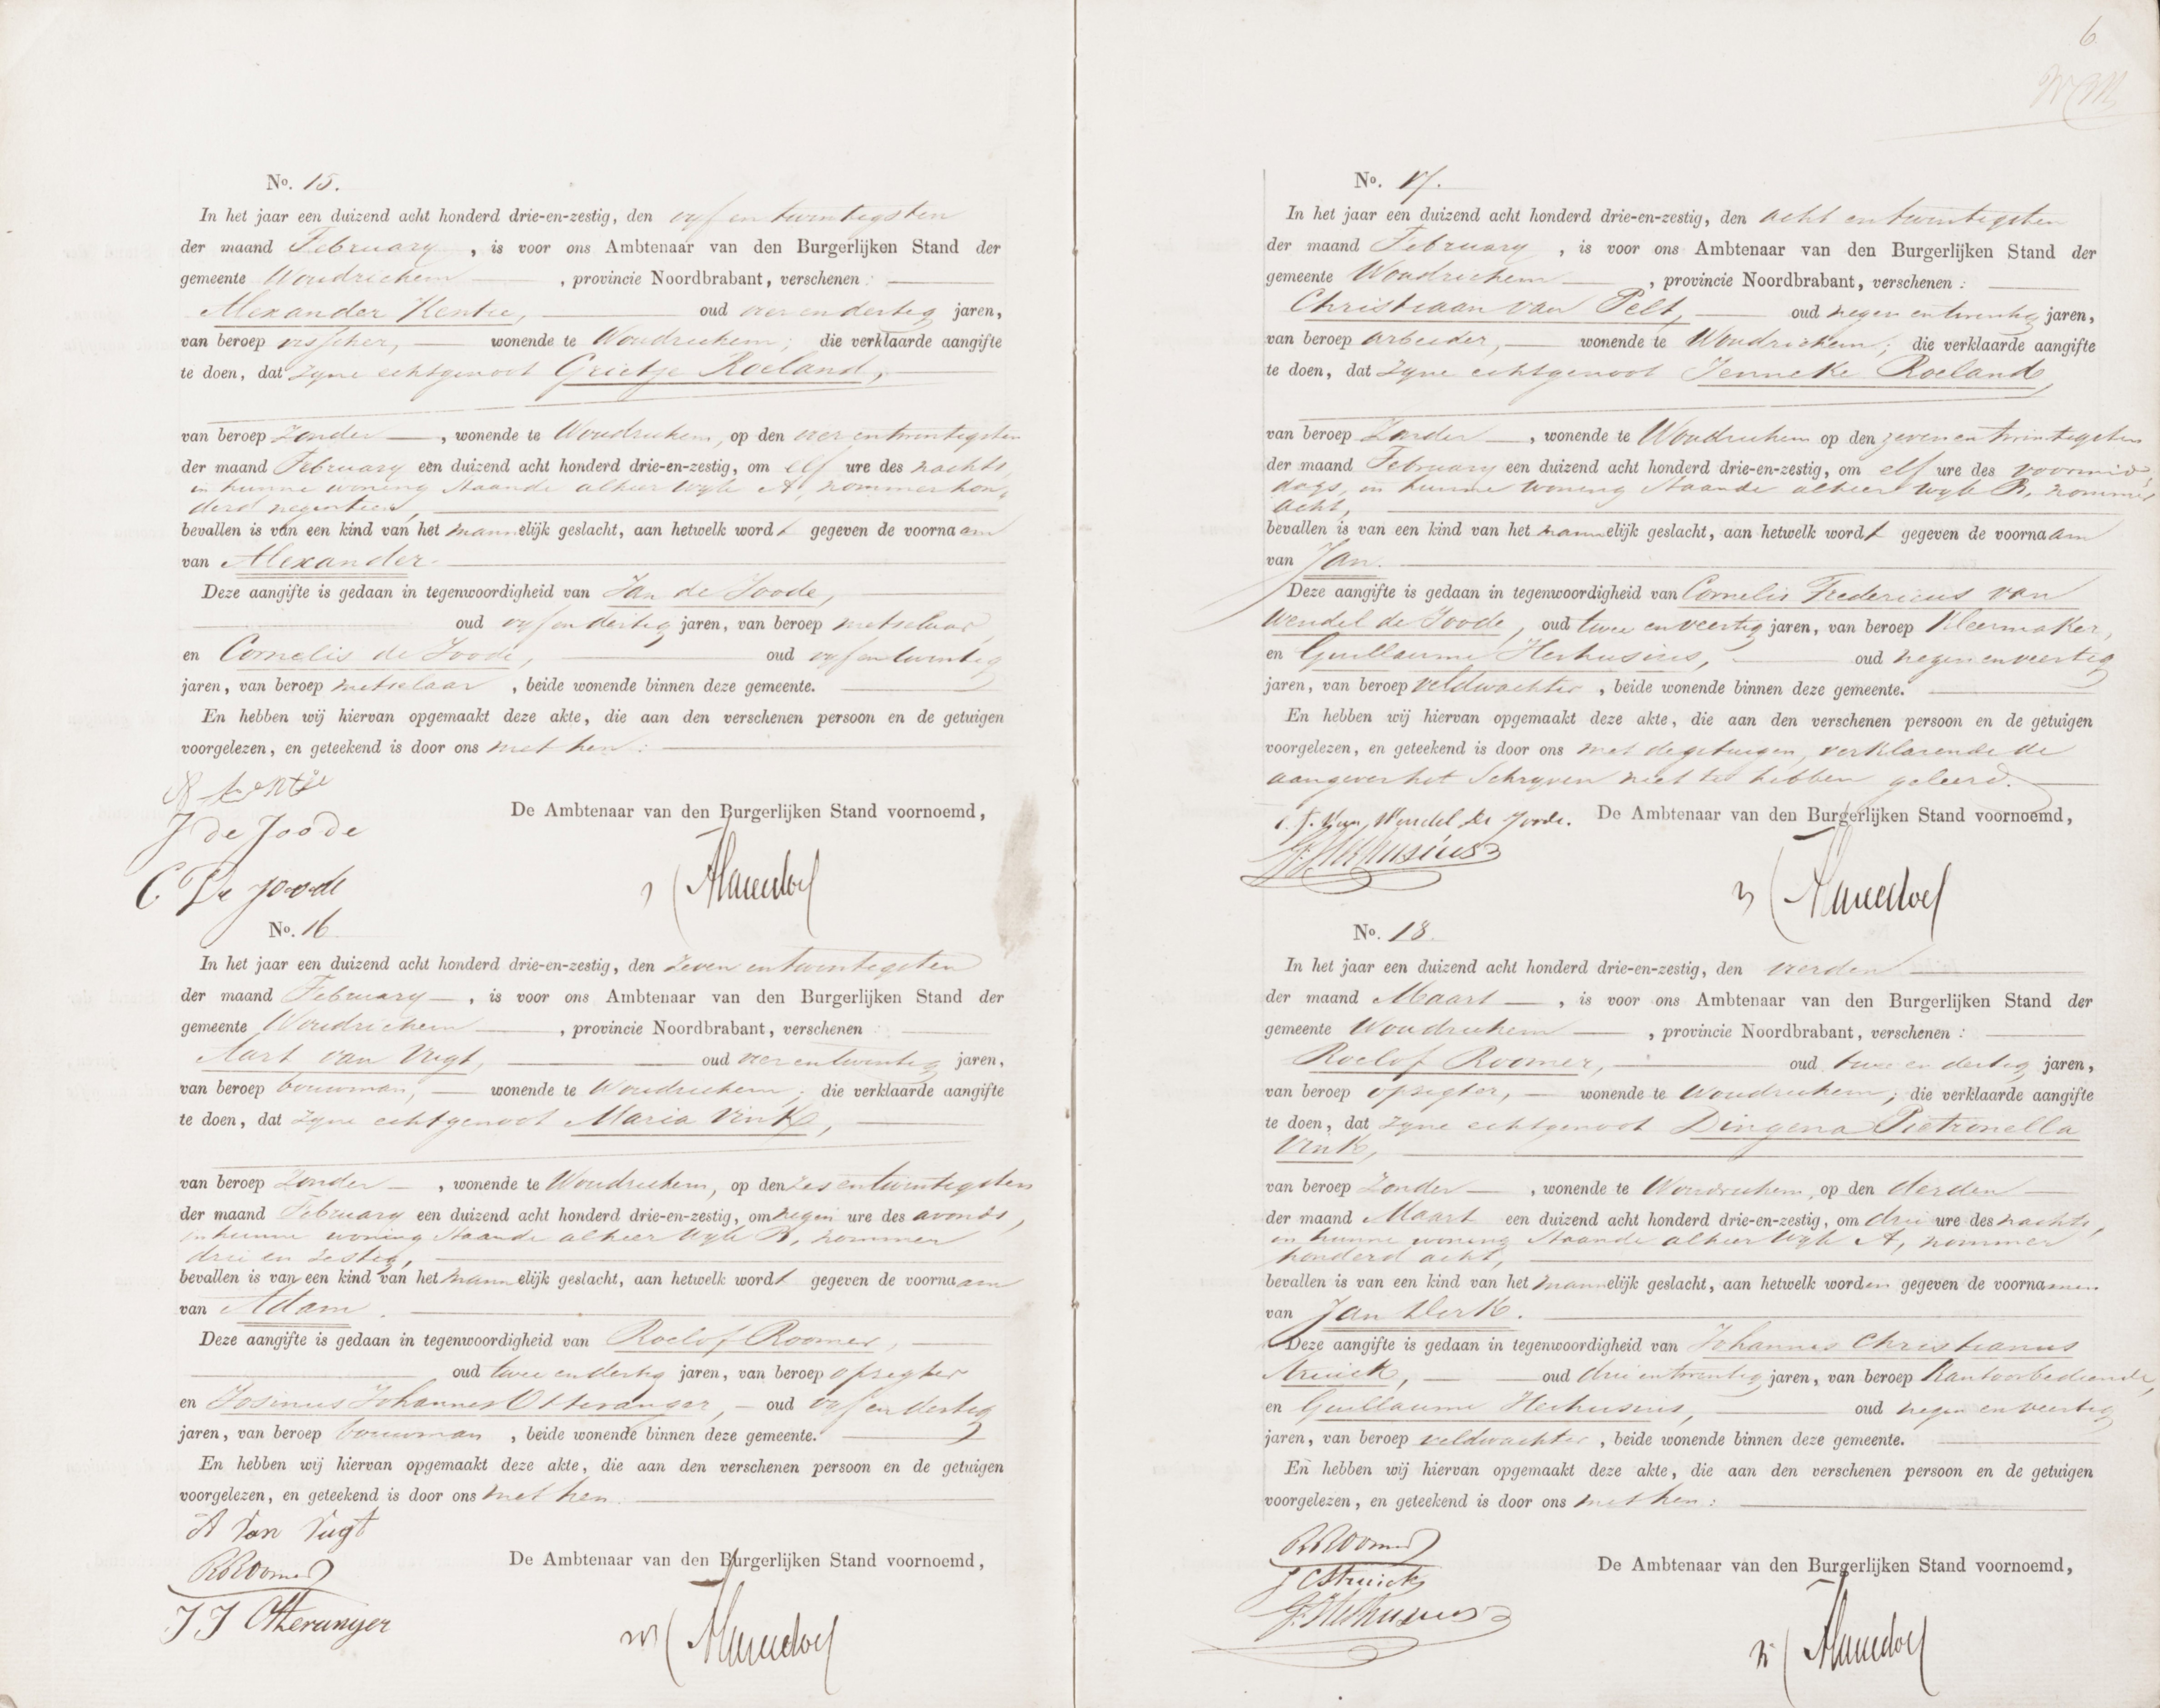 No. 15.
In het jaar een duizend acht honderd drie-en-zestig, den vyf en twintigsten
der maand February, is voor ons Ambtenaar van den Burgerlijken Stand der
gemeente Woudrichem, provincie Noordbrabant, verschenen:
Alexander Kentie, oud vier en dertig jaren,
van beroep visscher, wonende te Woudrichem; die verklaarde aangifte
te doen, dat zyne echtgenoot Grietje Roeland,
van beroep zonder, wonende te Woudrichem, op den vier en twintigsten
der maand February een duizend acht honderd drie-en-zestig, om elf ure des nachts,
in hunne woning staande alhier wyk A, nommer hon-
derd negentien,
bevallen is van een kind van het mannelijk geslacht, aan hetwelk wordt gegeven de voornaam
van Alexander.
Deze aangifte is gedaan in tegenwoordigheid van Jan de Joode,
oud vyf en dertig jaren, van beroep metselaar,
en Cornelis de Joode, oud vyf en twintig
jaren, van beroep metselaar, beide wonende binnen deze gemeente.
En hebben wij hiervan opgemaakt deze akte, die aan den verschenen persoon en de getuigen
voorgelezen, en geteekend is door ons met hen:
A Kentie
J de Joode
De Ambtenaar van den Burgerlijken Stand voornoemd,
C De Joode
No. 16.
In het jaar een duizend acht honderd drie-en-zestig, den zeven en twintigsten
der maand February, is voor ons Ambtenaar van den Burgerlijken Stand der
gemeente Woudrichem, provincie Noordbrabant, verschenen:
Aart van Vugt, oud vier en twintig jaren,
van beroep bouwman, wonende te Woudrichem; die verklaarde aangifte
te doen, dat zyne echtgenoot Maria Vink,
van beroep zonder, wonende te Woudrichem, op den zes en twintigsten
der maand February een duizend acht honderd drie-en-zestig, om negen ure des avonds,
in hunne woning staande alhier wyk B, nommer
drie en zestig,
bevallen is van een kind van het mannelijk geslacht, aan hetwelk wordt gegeven de voornaam
van Adam.
Deze aangifte is gedaan in tegenwoordigheid van Roelof Roomer,
oud twee en dertig jaren, van beroep opzigter
en Josinus Johannes Otteranger, oud vyf en dertig
jaren, van beroep bouwman, beide wonende binnen deze gemeente.
En hebben wij hiervan opgemaakt deze akte, die aan den verschenen persoon en de getuigen
voorgelezen, en geteekend is door ons met hen.
A van Vugt
De Ambtenaar van den Burgerlijken Stand voornoemd,
R Roomer
J J Otteranger
6
No. 17.
In het jaar een duizend acht honderd drie-en-zestig, den acht en twintigsten
der maand February, is voor ons Ambtenaar van den Burgerlijken Stand der
gemeente Woudrichem, provincie Noordbrabant, verschenen:
Christiaan van Pelt, oud negen en twintig jaren,
van beroep arbeider, wonende te Woudrichem; die verklaarde aangifte
te doen, dat zyne echtgenoot Jenneke Roeland,
van beroep zonder, wonende te Woudrichem op den zeven en twintigsten
der maand February een duizend acht honderd drie-en-zestig, om elf ure des voormid-
dags, in hunne woning staande alhier wyk B, nommer
acht,
bevallen is van een kind van het mannelijk geslacht, aan hetwelk wordt gegeven de voornaam
van Jan.
Deze aangifte is gedaan in tegenwoordigheid van Cornelis Fredericus van
Wendel de Joode, oud twee en veertig jaren, van beroep kleermaker,
en Guillaume Herhusius, oud negen en veertig
jaren, van beroep veldwachter, beide wonende binnen deze gemeente.
En hebben wij hiervan opgemaakt deze akte, die aan den verschenen persoon en de getuigen
voorgelezen, en geteekend is door ons met de getuigen, verklarende de
aangever het Schryven niet te hebben geleerd.
C. F. van Wendel de Joode.
De Ambtenaar van den Burgerlijken Stand voornoemd,
G. Herhusius
No. 18.
In het jaar een duizend acht honderd drie-en-zestig, den vierden
der maand Maart, is voor ons Ambtenaar van den Burgerlijken Stand der
gemeente Woudrichem, provincie Noordbrabant, verschenen:
Roelof Roomer, oud twee en dertig jaren,
van beroep opzigter, wonende te Woudrichem; die verklaarde aangifte
te doen, dat zyne echtgenoot Dingena Pietronella
Vink,
van beroep zonder, wonende te Woudrichem, op den derden
der maand Maart een duizend acht honderd drie-en-zestig, om drie ure des nachts,
in hunne woning staande alhier wyk A, nommer
honderd acht,
bevallen is van een kind van het mannelijk geslacht, aan hetwelk worden gegeven de voornamen
van Jan Derk.
Deze aangifte is gedaan in tegenwoordigheid van Johannes Christianus
Struick, oud drie en twintig jaren, van beroep kantoorbediende,
en Guillaume Herhusius, oud negen en veertig
jaren, van beroep veldwachter, beide wonende binnen deze gemeente.
En hebben wij hiervan opgemaakt deze akte, die aan den verschenen persoon en de getuigen
voorgelezen, en geteekend is door ons met hen:
R Roomer
De Ambtenaar van den Burgerlijken Stand voornoemd,
J C Struick
G. Herhusius